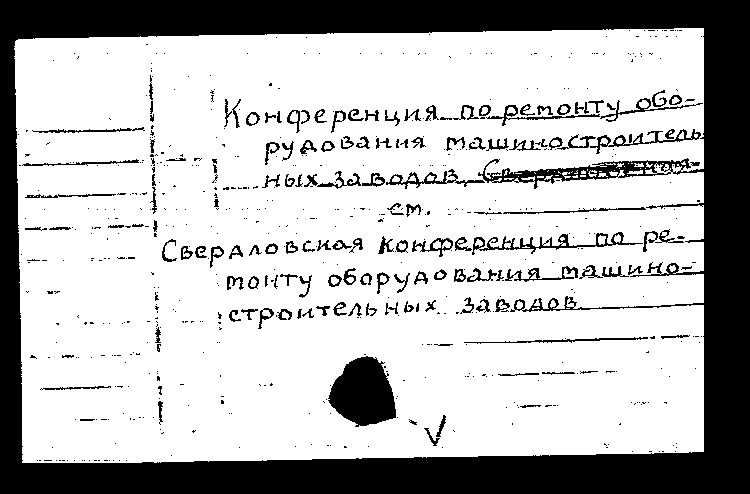 Конференция по ремонту обо-
рудования машиностроитель-
ных заводов.
см.
Свердловская конференция по ре-
монту оборудования машино-
строительных заводов